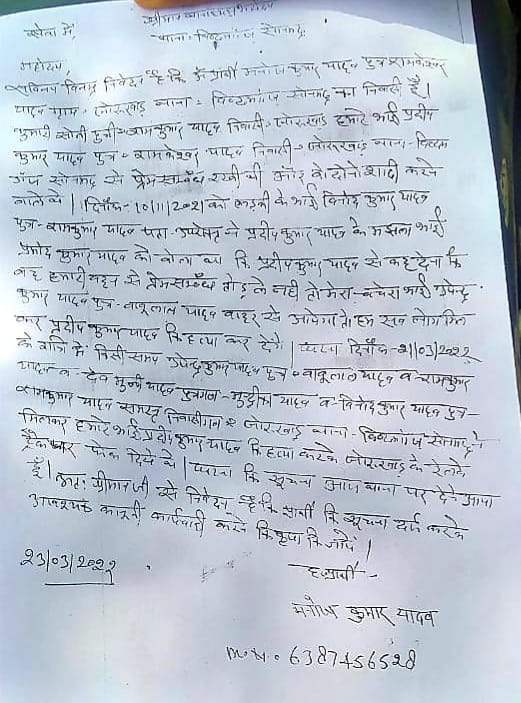 सेवा में,
श्रीमान थानाध्यक्ष महोदय
थाना- विण्ढमगंज सोनभद्र
महोदय,
सविनय विनम्र निवेदन है कि मैं प्रार्थी मनोज कुमार यादव पुत्र रामकेश्वर
यादव ग्राम- जोरूखाड़ थाना- विण्ढमगंज सोनभद्र का निवासी हूँ।
कुमारी सोनी पुत्री- रामकुमार यादव निवासी- जोरूखाड़ हमारे भाई प्रदीप
कुमार यादव पुत्र- रामकेश्वर यादव निवासी- जोरूखाड़ थाना- विण्ढम
गंज सोनभद्र से प्रेम सम्बन्ध रखी थी और वे दोनों शादी करने
वाले थे। दिनाँक- 10/11/2021 को लड़की के भाई विनोद कुमार यादव
पुत्र- रामकुमार यादव पता- उपरोक्त ने प्रदीप कुमार यादव के मझला भाई
प्रमोद कुमार यादव को बोला था कि प्रदीप कुमार यादव से कह देना कि
वह हमारी बहन से प्रेम सम्बन्ध तोड़ दे नही तो मेरा चचेरा भाई उपेन्द्र
कुमार यादव पुत्र- बाबूलाल यादव बाहर से आयेगा तो हम सब लोग मिल
कर प्रदीप कुमार यादव कि हत्या कर देंगे। घटना दिनाँक- 21/03/2022
को रात्रि में किसी समय उपेन्द्र कुमार यादव पुत्र- बाबूलाल यादव व रामकुमार
यादव व देव मुनी यादव पुत्रगण- यादव व विनोद कुमार यादव पुत्र-
रामकुमार यादव समस्त निवासीगण जोरूखाड़ थाना- विण्ढमगंज सोनभद्र ने
मिलकर हमारे भाई प्रदीप कुमार यादव कि हत्या करके जोरूखाड़ के रेलवे
फेक दिये थे। घटना कि सूचना आप थाना पर देने आया
हूँ। अतः श्रीमान जी से निवेदन है कि प्रार्थी कि सूचना दर्ज करके
आवश्यक कानूनी कार्यवाही करने कि कृपा कि जाये।
23/03/2022
ह. प्रार्थी -
मनोज कुमार यादव
m.N. 6387456528